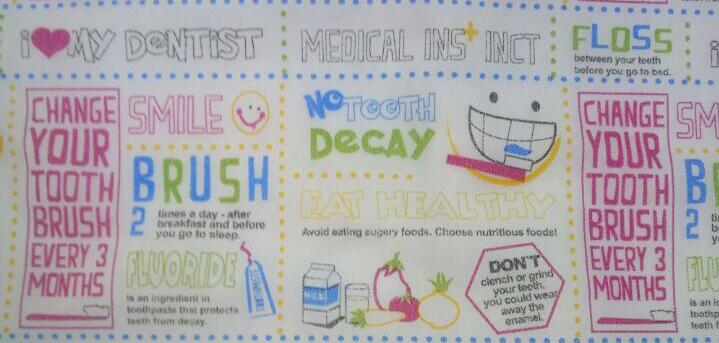 i ♥ MY DENTIST
MEDICAL INS+INCT
FLOSS
between your teeth
before you go to bed.
CHANGE
YOUR
TOOTH
BRUSH
EVERY 3
MONTHS
SMILE
BRUSH
2 times a day - after
breakfast and before
you go to sleep.
FLUORIDE
is an ingredient in
toothpaste that protects
teeth from decay.
TOOTHPASTE
NO TOOTH
DECAY
EAT HEALTHY
Avoid eating sugery foods. Choose nutritious foods!
MILK
DON'T
clench or grind
your teeth,
you could wear
away the
enamel.
CHANGE
YOUR
TOOTH
BRUSH
EVERY 3
MONTHS
SM
B
2
FLU
is an in
toothp
teeth f